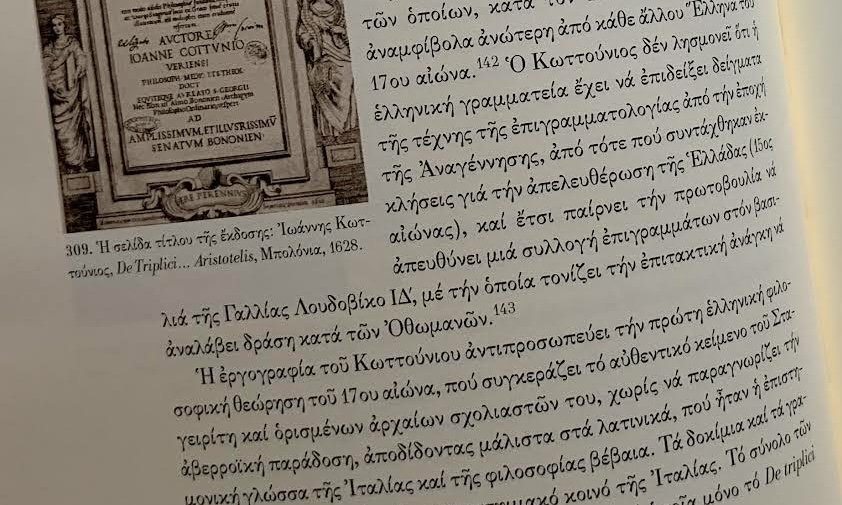 AVCTORE
IOANNE COTTVNIO
VERIENSI
PHILOSOPH. MEDIC. ET S. THEOL.
DOCT.
EQVITIQVE AVREATO S. GEORGII
AD
AMPLISSIMVM, ET ILLVSTRISSIMV̄
SENATVM BONONIEN.
ÆRE PERENNIVS
309. Ἡ σελίδα τίτλου τῆς ἔκδοσης: Ἰωάννης Κωτ-
τούνιος, De Triplici... Aristotelis, Μπολόνια, 1628.
τῶν ὁποίων, κατὰ τὸν
ἀναμφίβολα ἀνώτερη ἀπό κάθε ἄλλου Ἕλληνα τοῦ
17ου αἰώνα.142 Ὁ Κωττούνιος δέν λησμονεῖ ὅτι ἡ
ἑλληνική γραμματεία ἔχει νά ἐπιδείξει δείγματα
τῆς τέχνης τῆς ἐπιγραμματολογίας ἀπό τήν ἐποχή
τῆς Ἀναγέννησης, ἀπό τότε πού συντάχθηκαν ἐκ-
κλήσεις γιά τήν ἀπελευθέρωση τῆς Ἑλλάδας (15ος
αἰώνας), καί ἔτσι παίρνει τήν πρωτοβουλία νά
ἀπευθύνει μιά συλλογή ἐπιγραμμάτων στόν βασι-
λιά τῆς Γαλλίας Λουδοβίκο ΙΔ', μέ τήν ὁποία τονίζει τήν ἐπιτακτική ἀνάγκη νά
ἀναλάβει δράση κατά τῶν Ὀθωμανῶν.143
Ἡ ἐργογραφία τοῦ Κωττούνιου ἀντιπροσωπεύει τήν πρώτη ἑλληνική φιλο-
σοφική θεώρηση τοῦ 17ου αἰώνα, πού συγκεράζει τό αὐθεντικό κείμενο τοῦ Στα-
γειρίτη καί ὁρισμένων ἀρχαίων σχολιαστῶν του, χωρίς νά παραγνωρίζει τήν
ἀβερροϊκή παράδοση, ἀποδίδοντας μάλιστα στά λατινικά, πού ἦταν ἡ ἐπιστη-
μονική γλώσσα τῆς Ἰταλίας καί τῆς φιλοσοφίας βέβαια. Τά δοκίμια καί τά γρα-
κοινό τῆς Ἰταλίας. Τό σύνολο τῶν
μόνο τό De triplici